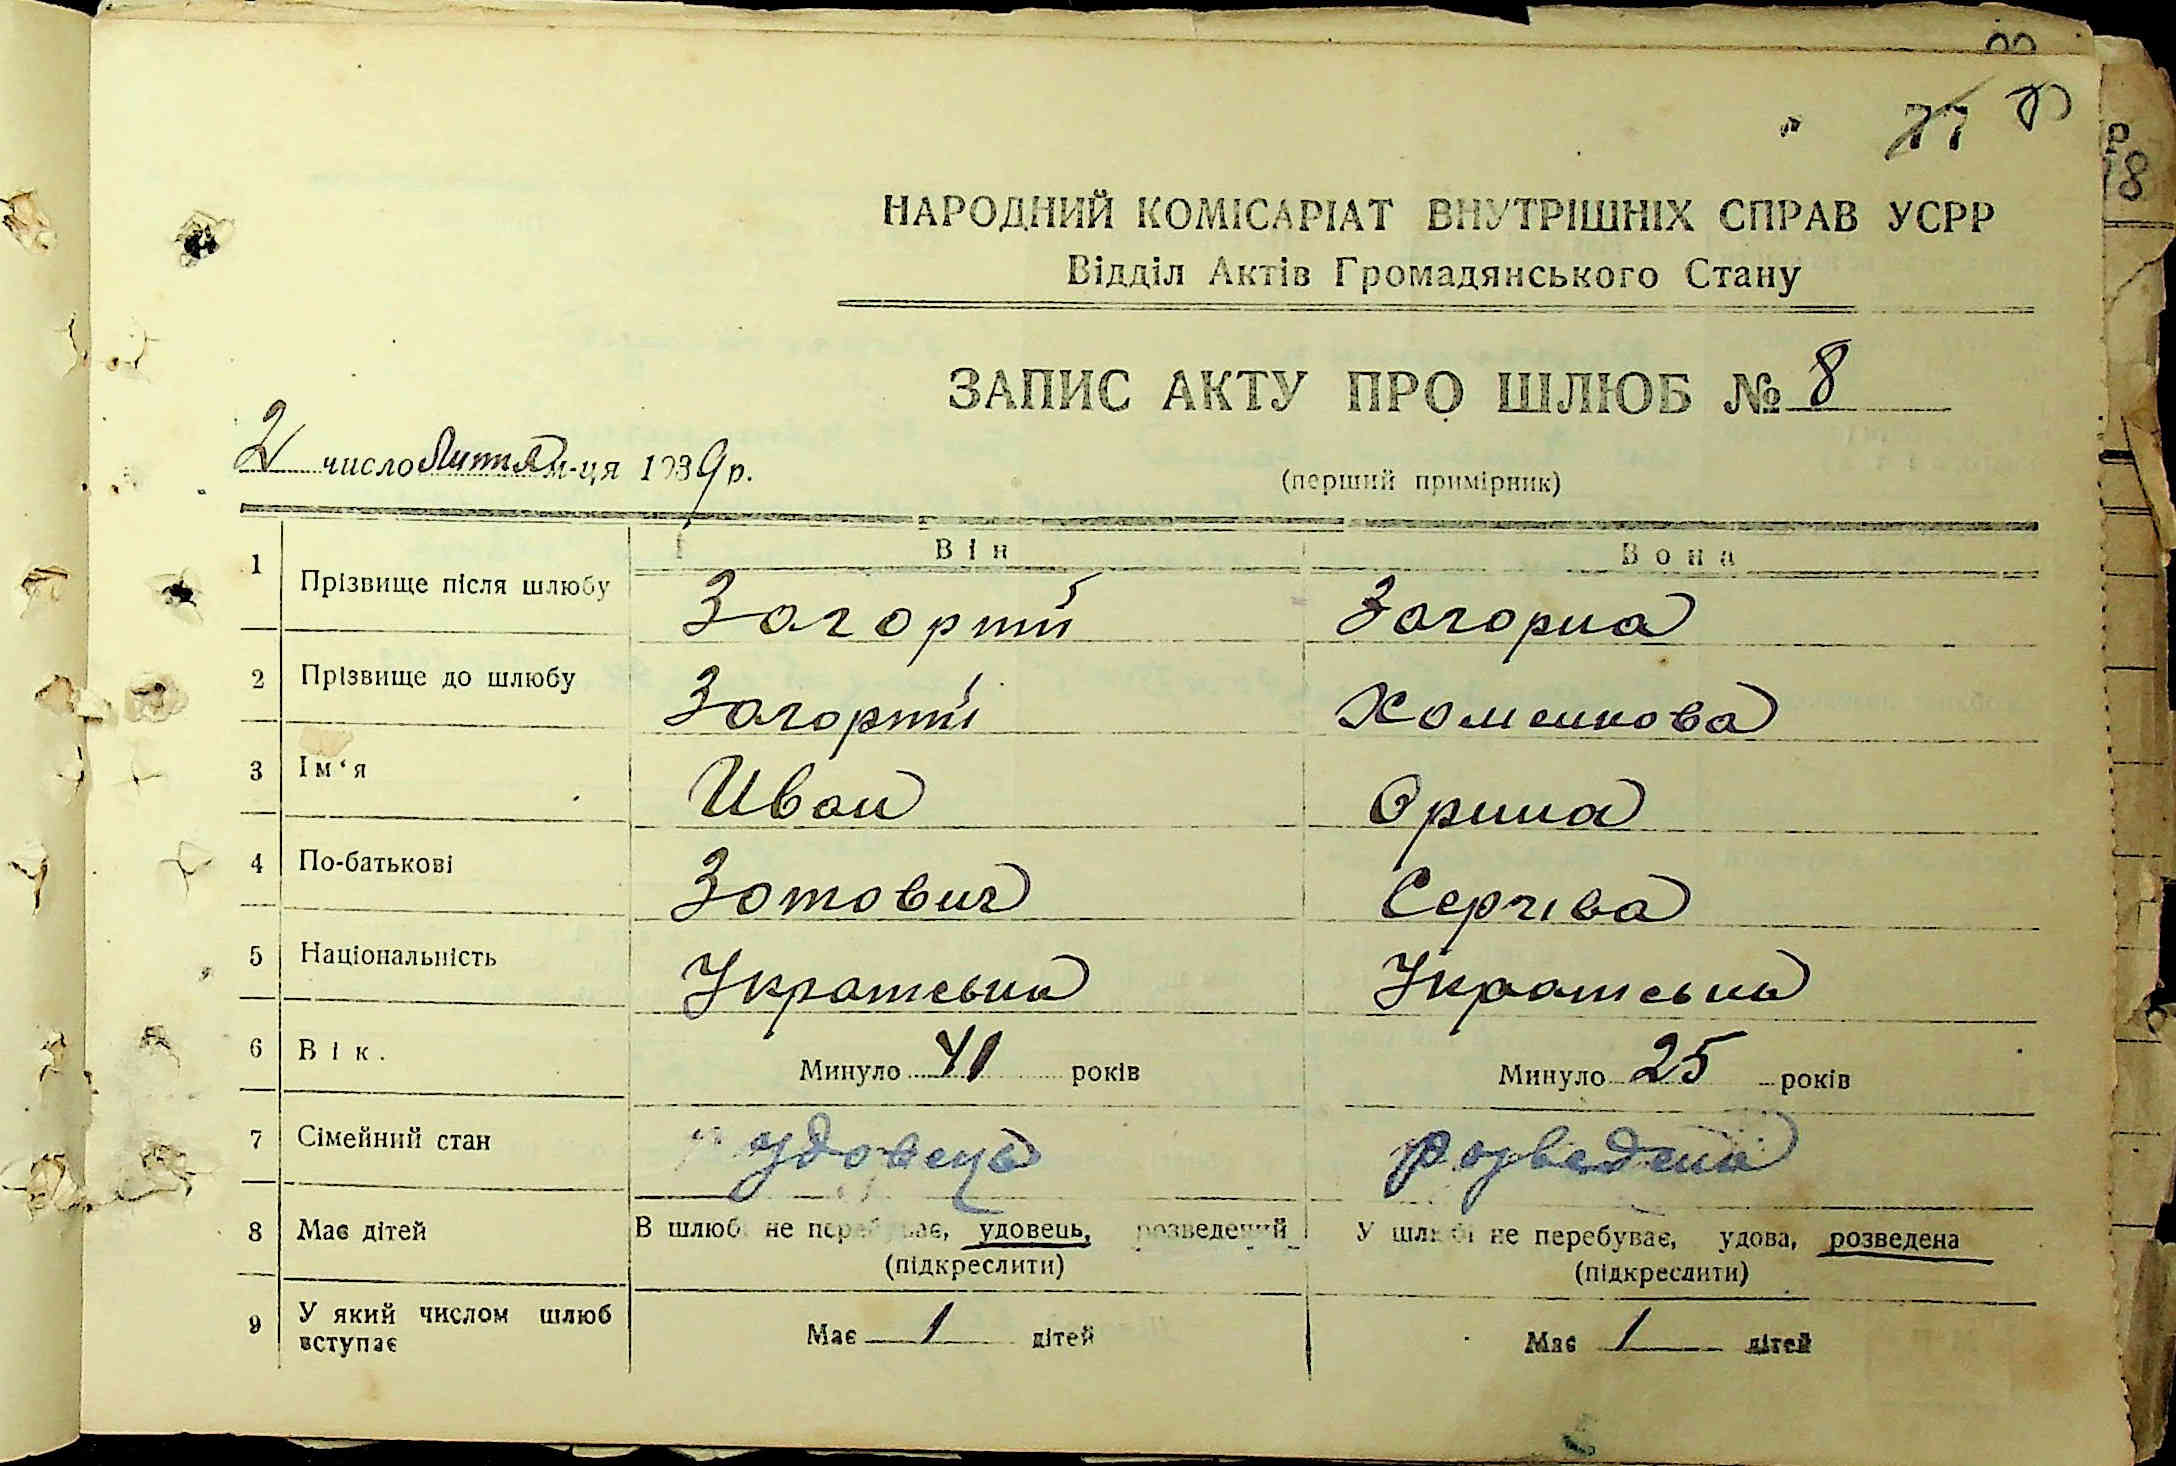 77 8
НАРОДНИЙ КОМІСАРІАТ ВНУТРІШНІХ СПРАВ УСРР
Відділ Актів Громадянського Стану
ЗАПИС АКТУ ПРО ШЛЮБ № 8
2 число м-ця 1939 р.
(перший примірник)
Він Вона
1 Прізвище після шлюбу Загорний Загорна
2 Прізвище до шлюбу Загорний Хоменкова
3 Ім‘я Иван Орина
4 По-батькові Зотович Сергіва
5 Національність Українська Українська
6 Вік. Минуло 41 років Минуло 25 років
7 Сімейний стан удовець розведена
8 Має дітей В шлюбі не перебуває, удовець, розведений У шлюбі не перебуває, удова, розведена
(підкреслити) (підкреслити)
9 У який числом шлюб вступає Має 1 дітей Має 1 дітей